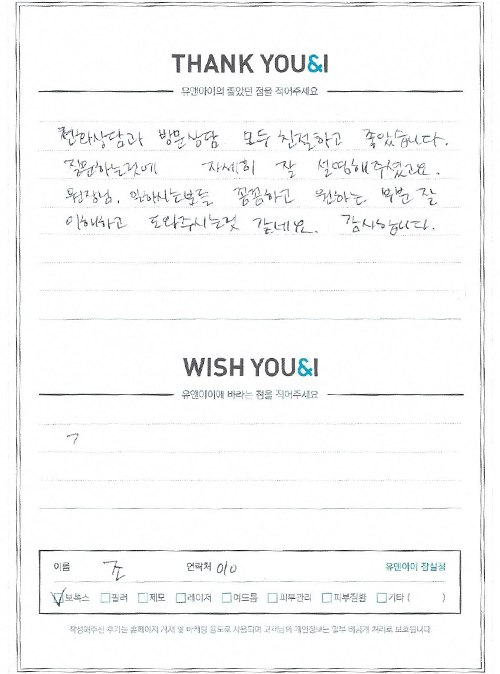 THANK YOU&I
유앤아이의 좋았던 점을 적어주세요
전화상담과 방문상담 모두 친절하고 좋았습니다.
질문하는것에 자세히 잘 설명해주셨고요.
원장님, 일하시는분들 꼼꼼하고 원하는 부분 잘
이해하고 도와주시는것 같네요. 감사합니다.
WISH YOU&I
유앤아이에 바라는 점을 적어주세요
이름 조 연락처 010 유앤아이 잠실점
보톡스 필러 제모 레이저 여드름 피부관리 피부질환 기타 ( )
작성해주신 후기는 홈페이지 게재 및 마케팅 용도로 사용되며 고객님의 개인정보는 일부 비공개 처리로 보호됩니다.